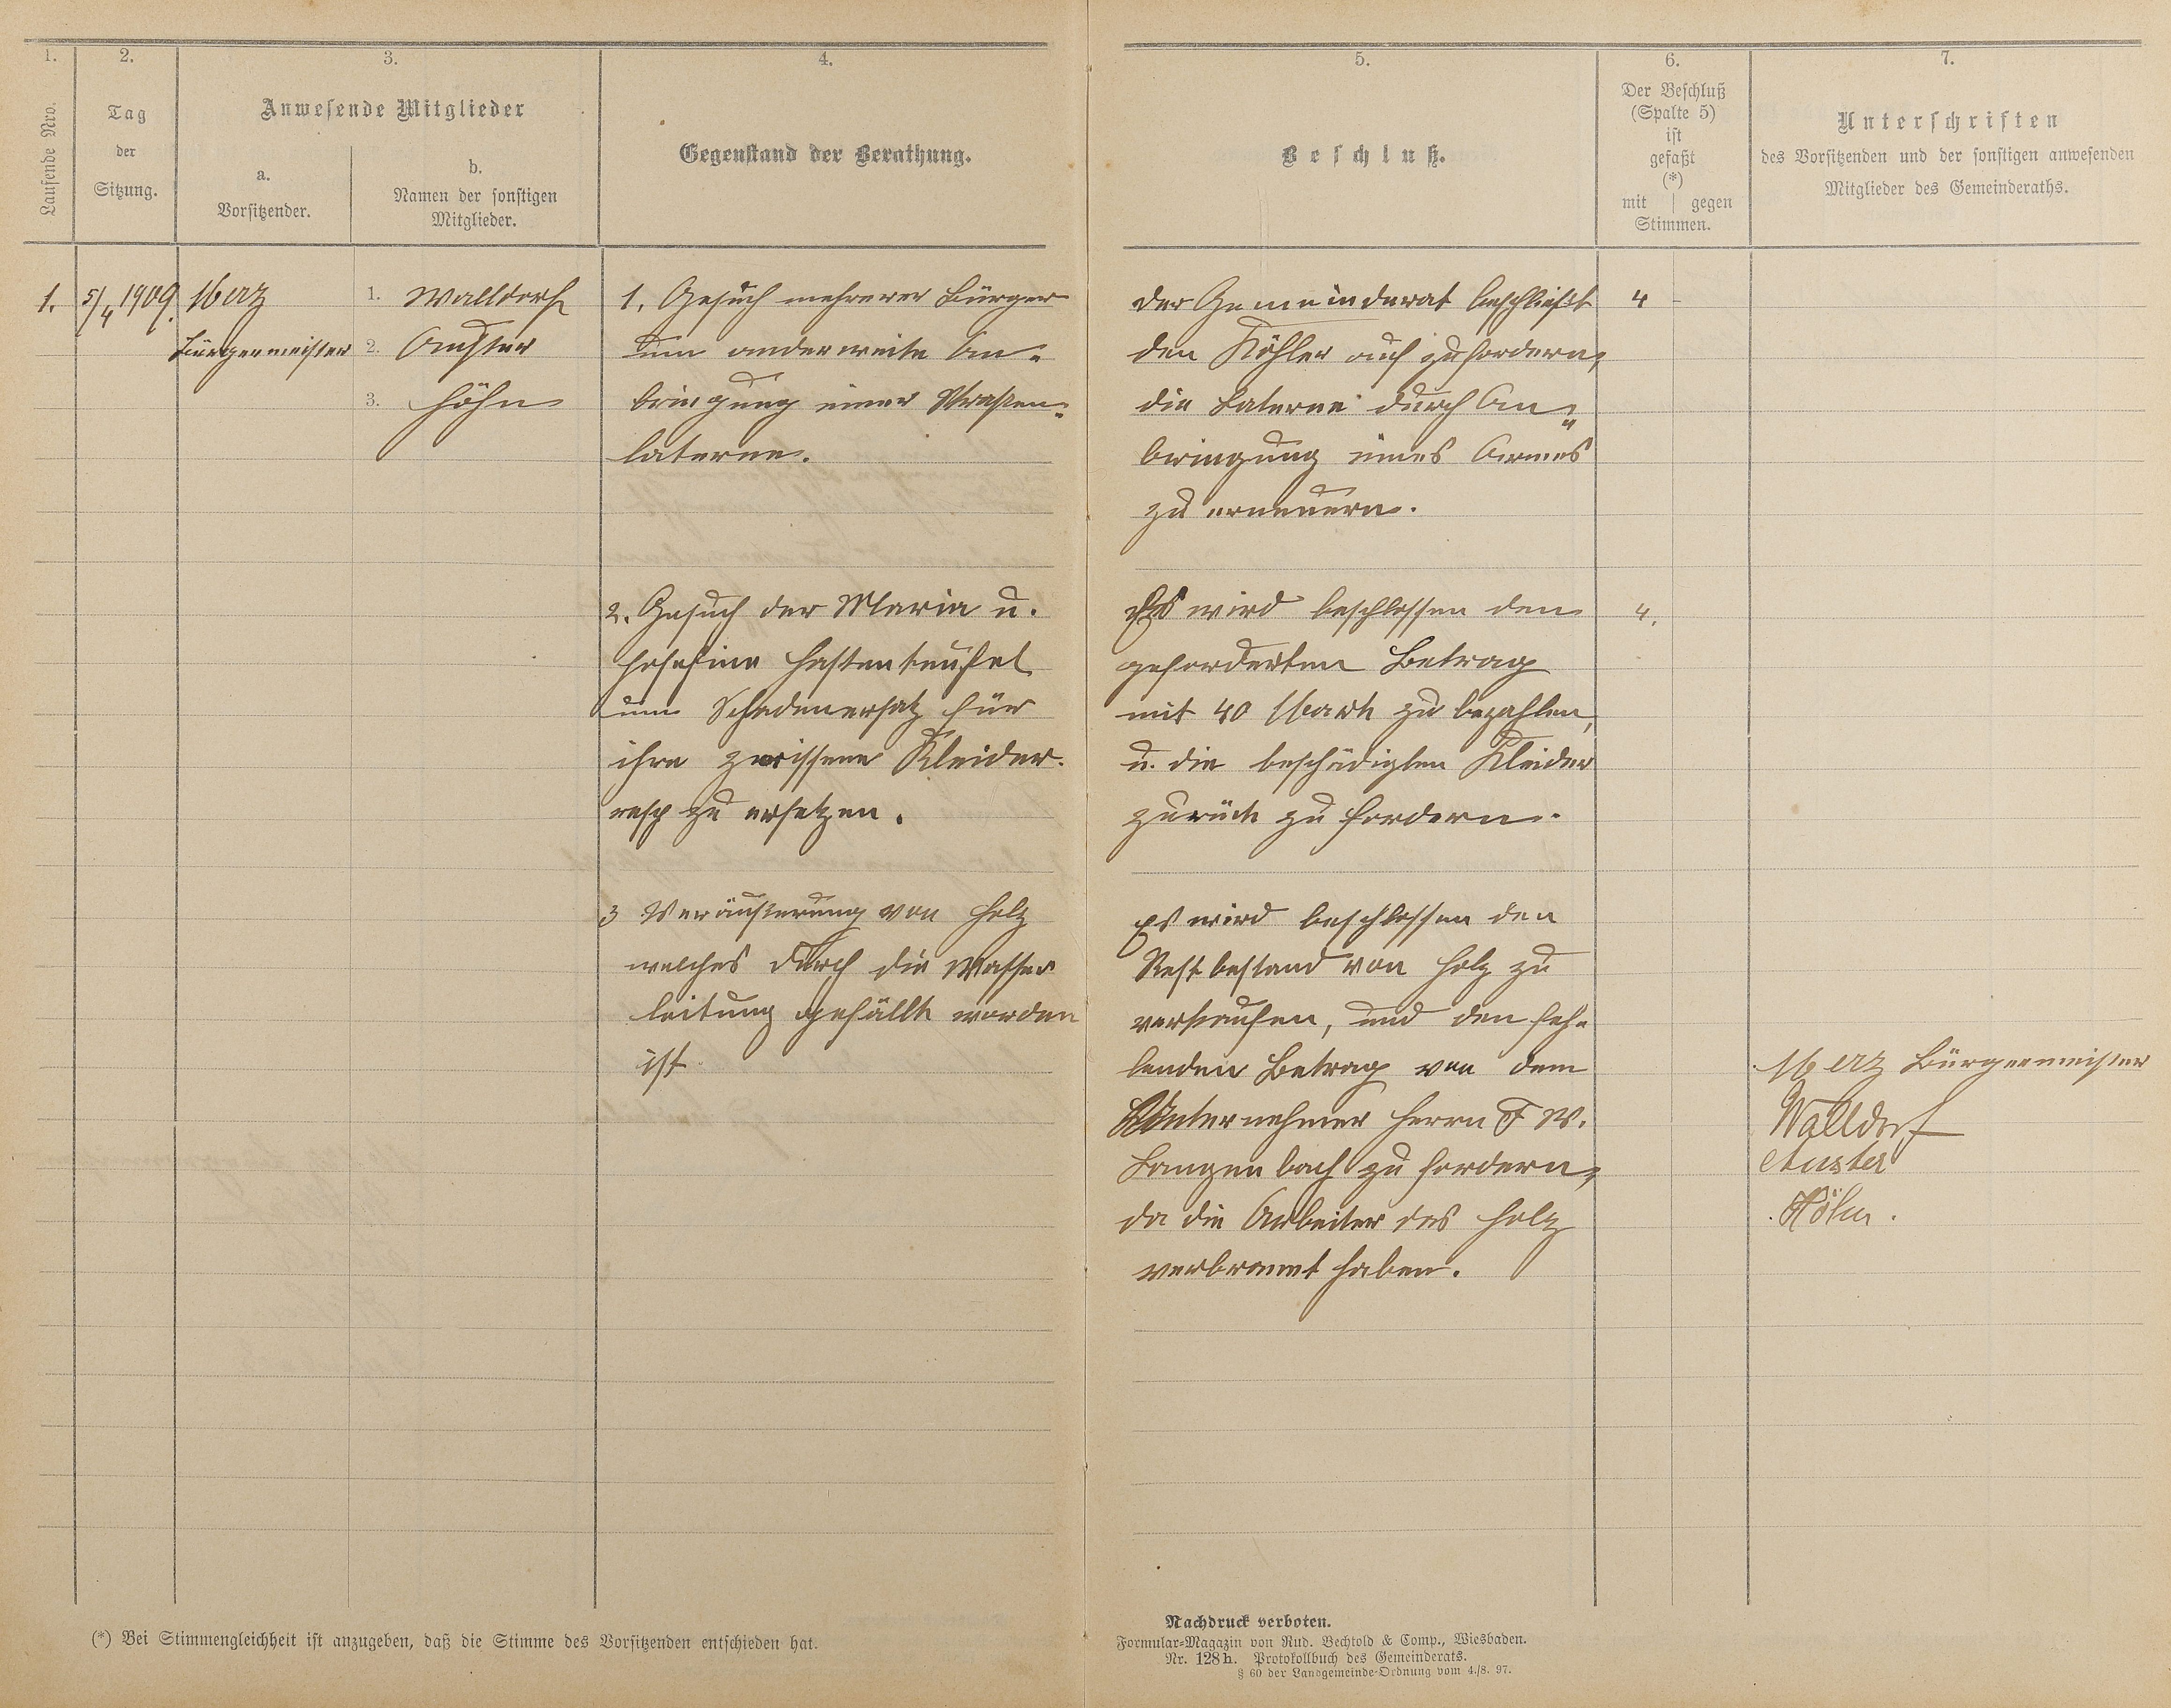 1.
2.
3.
4.
Laufende Nro.
Tag
der
Sitzung.
Anwesende Mitglieder
a.
Vorsitzender.
b.
Namen der sonstigen
Mitglieder.
Gegenstand der Berathung.
5.
6.
7.
Beschluß.
Der Beschluß
(Spalte 5)
ist
gefaßt
(*)
mit | gegen
Stimmen.
Unterschriften
des Vorsitzenden und der sonstigen anwesenden
Mitglieder des Gemeinderaths.
1.
5/4 1909.
Merz
Bürgermeister
1. Walldorf
2. Auster
3. Höhn
1. Gesuch mehrerer Bürger
um anderweite An-
bringung einer Strassen-
laterne.
2. Gesuch der Maria u.
Josefine Hastenteufel
um Schadenersatz für
ihre zerrissene Kleider.
resp zu ersetzen.
3 Veräußerung von Holz
welches durch die Wasser
leitung gefällt worden
ist
Der Gemeinderat beschließt
den Köhler auf zufordern,
die Laterne durch An-
bringung eines Armes
zu erneuern.
4 -
Es wird beschlossen den
geforderten Betrag
mit 40 Mark zu bezahlen,
u. die beschädigten Kleider
zurück zu fordern.
4.
Es wird beschlossen den
Restbestand von Holz zu
verkaufen, und den feh-
lenden Betrag von dem
Unternehmer Herrn F W.
Langenbach zu fordern,
da die Arbeiter das Holz
verbrannt haben.
Merz Bürgermeister
Walldorf
Auster
Höhn.
(*) Bei Stimmengleichheit ist anzugeben, daß die Stimme des Vorsitzenden entschieden hat.
Nachdruck verboten.
Formular-Magazin von Rud. Bechtold & Comp., Wiesbaden.
Nr. 128 h. Protokollbuch des Gemeinderats.
§ 60 der Landgemeinde-Ordnung vom 4./8. 97.